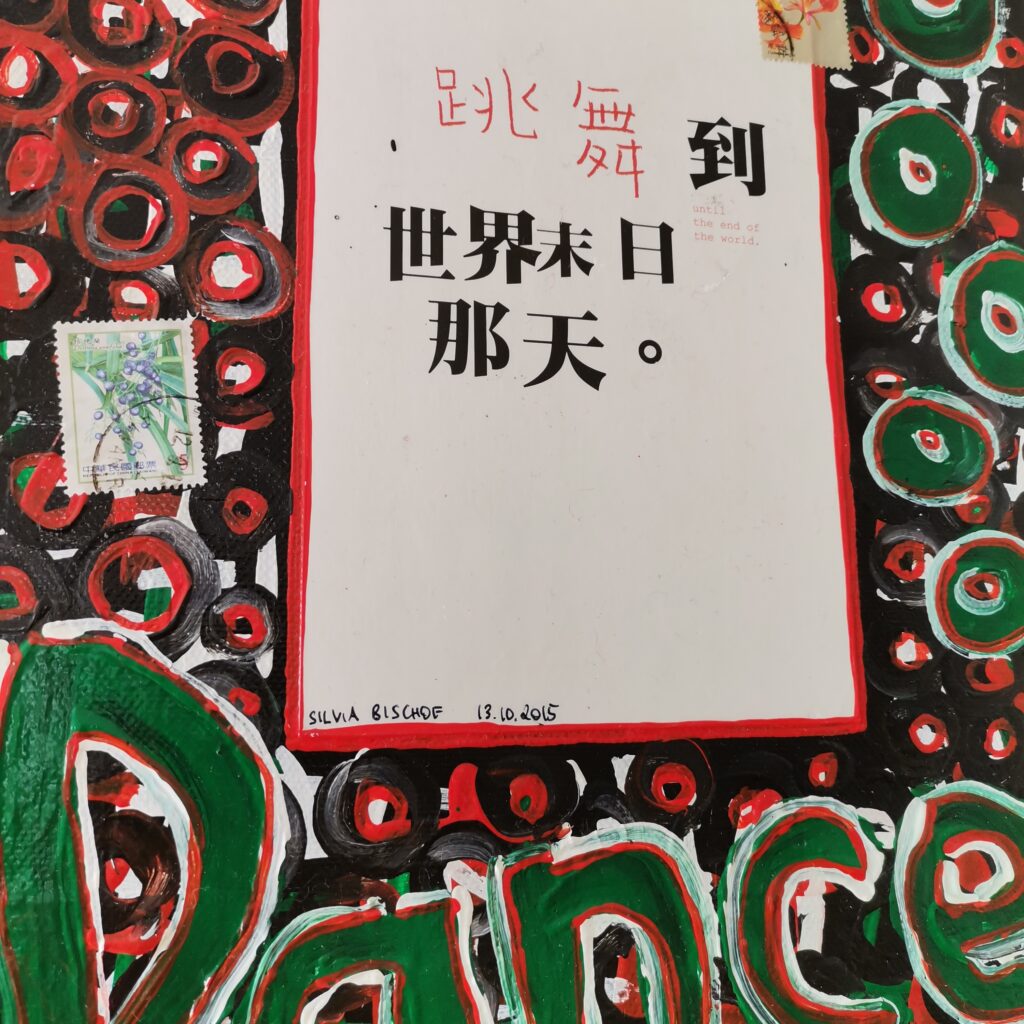 跳舞到
until
the end of
the world.
世界末日
那天。
中華民國郵票
5
SILVIA BISCHOF 13.10.2015
Dance